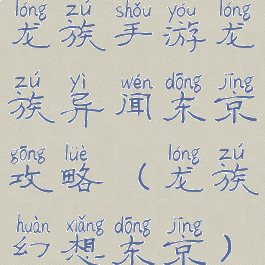 lóng zú shǒu yóu lóng
龙族手游龙
zú yì wén dōng jīng
族异闻东京
gōng lüè lóng zú
攻略（龙族
huàn xiǎng dōng jīng
幻想东京）